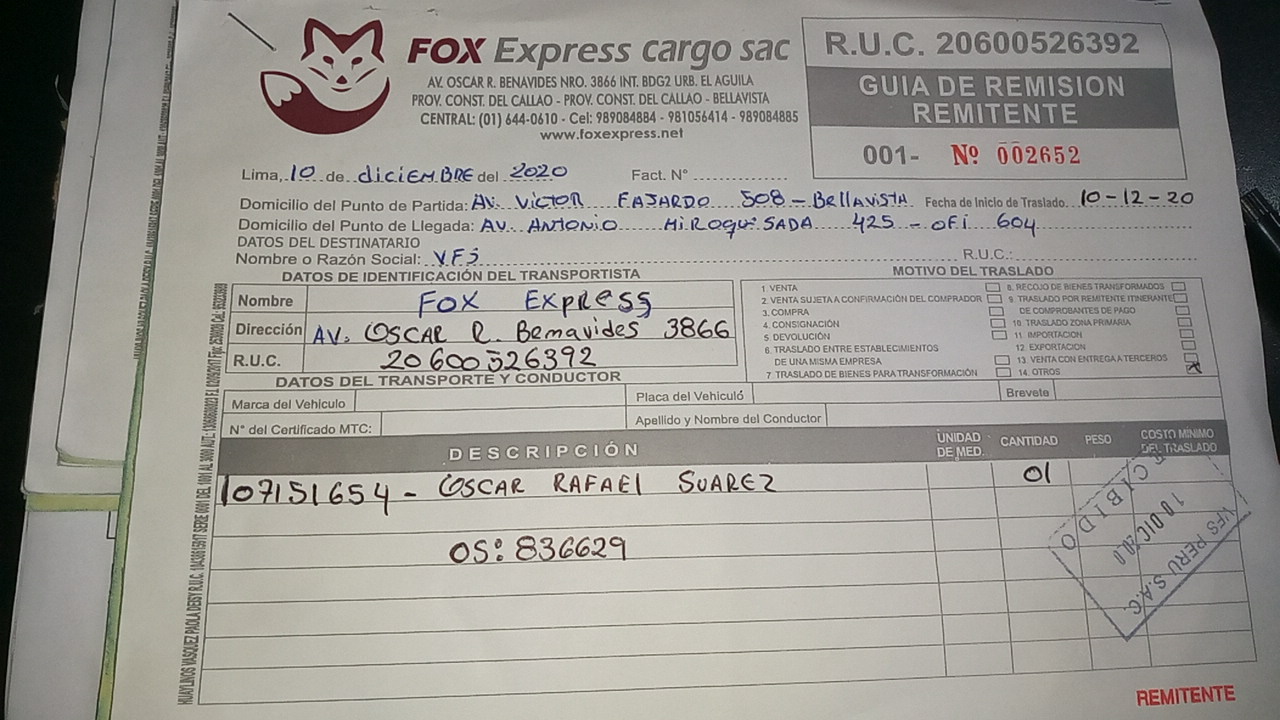 FOX Express cargo sac
AV. OSCAR R. BENAVIDES NRO. 3866 INT. BDG2 URB. EL AGUILA
PROV. CONST. DEL CALLAO - PROV. CONST. DEL CALLAO - BELLAVISTA
CENTRAL: (01) 644-0610 - Cel: 989084884 - 981056414 - 989084885
www.foxexpress.net
R.U.C. 20600526392
GUIA DE REMISION
REMITENTE
001- Nº 002652
Lima, 10 de diciEMBRE del 2020 Fact. N°
Domicilio del Punto de Partida: AV. VICTOR FAJARDO 508 - BellAVISTA Fecha de Inicio de Traslado. 10-12-20
Domicilio del Punto de Llegada: AV. ANTONIO MiROQuESADA 425 - OFi 604
DATOS DEL DESTINATARIO
Nombre o Razón Social: VFS R.U.C.:
DATOS DE IDENTIFICACIÓN DEL TRANSPORTISTA
Nombre FOX EXpRESS
Dirección AV. OSCAR R. Benavides 3866
R.U.C. 20600526392
MOTIVO DEL TRASLADO
1. VENTA
2. VENTA SUJETA A CONFIRMACIÓN DEL COMPRADOR
3. COMPRA
4. CONSIGNACIÓN
5. DEVOLUCIÓN
6. TRASLADO ENTRE ESTABLECIMIENTOS
DE UNA MISMA EMPRESA
7. TRASLADO DE BIENES PARA TRANSFORMACIÓN
8. RECOJO DE BIENES TRANSFORMADOS
9. TRASLADO POR REMITENTE ITINERANTE
DE COMPROBANTES DE PAGO
10. TRASLADO ZONA PRIMARIA
11. IMPORTACION
12. EXPORTACION
13. VENTA CON ENTREGA A TERCEROS
14. OTROS X
DATOS DEL TRANSPORTE Y CONDUCTOR
Marca del Vehículo Placa del Vehículo Brevete
N° del Certificado MTC: Apellido y Nombre del Conductor
DESCRIPCIÓN UNIDAD DE MED. CANTIDAD PESO COSTO MÍNIMO DEL TRASLADO
107151654 - OSCAR RAFAEl SUAREZ 01
OS: 836629
RECIBIDO
10 DIC 2020
VFS PERU S.A.C.
REMITENTE